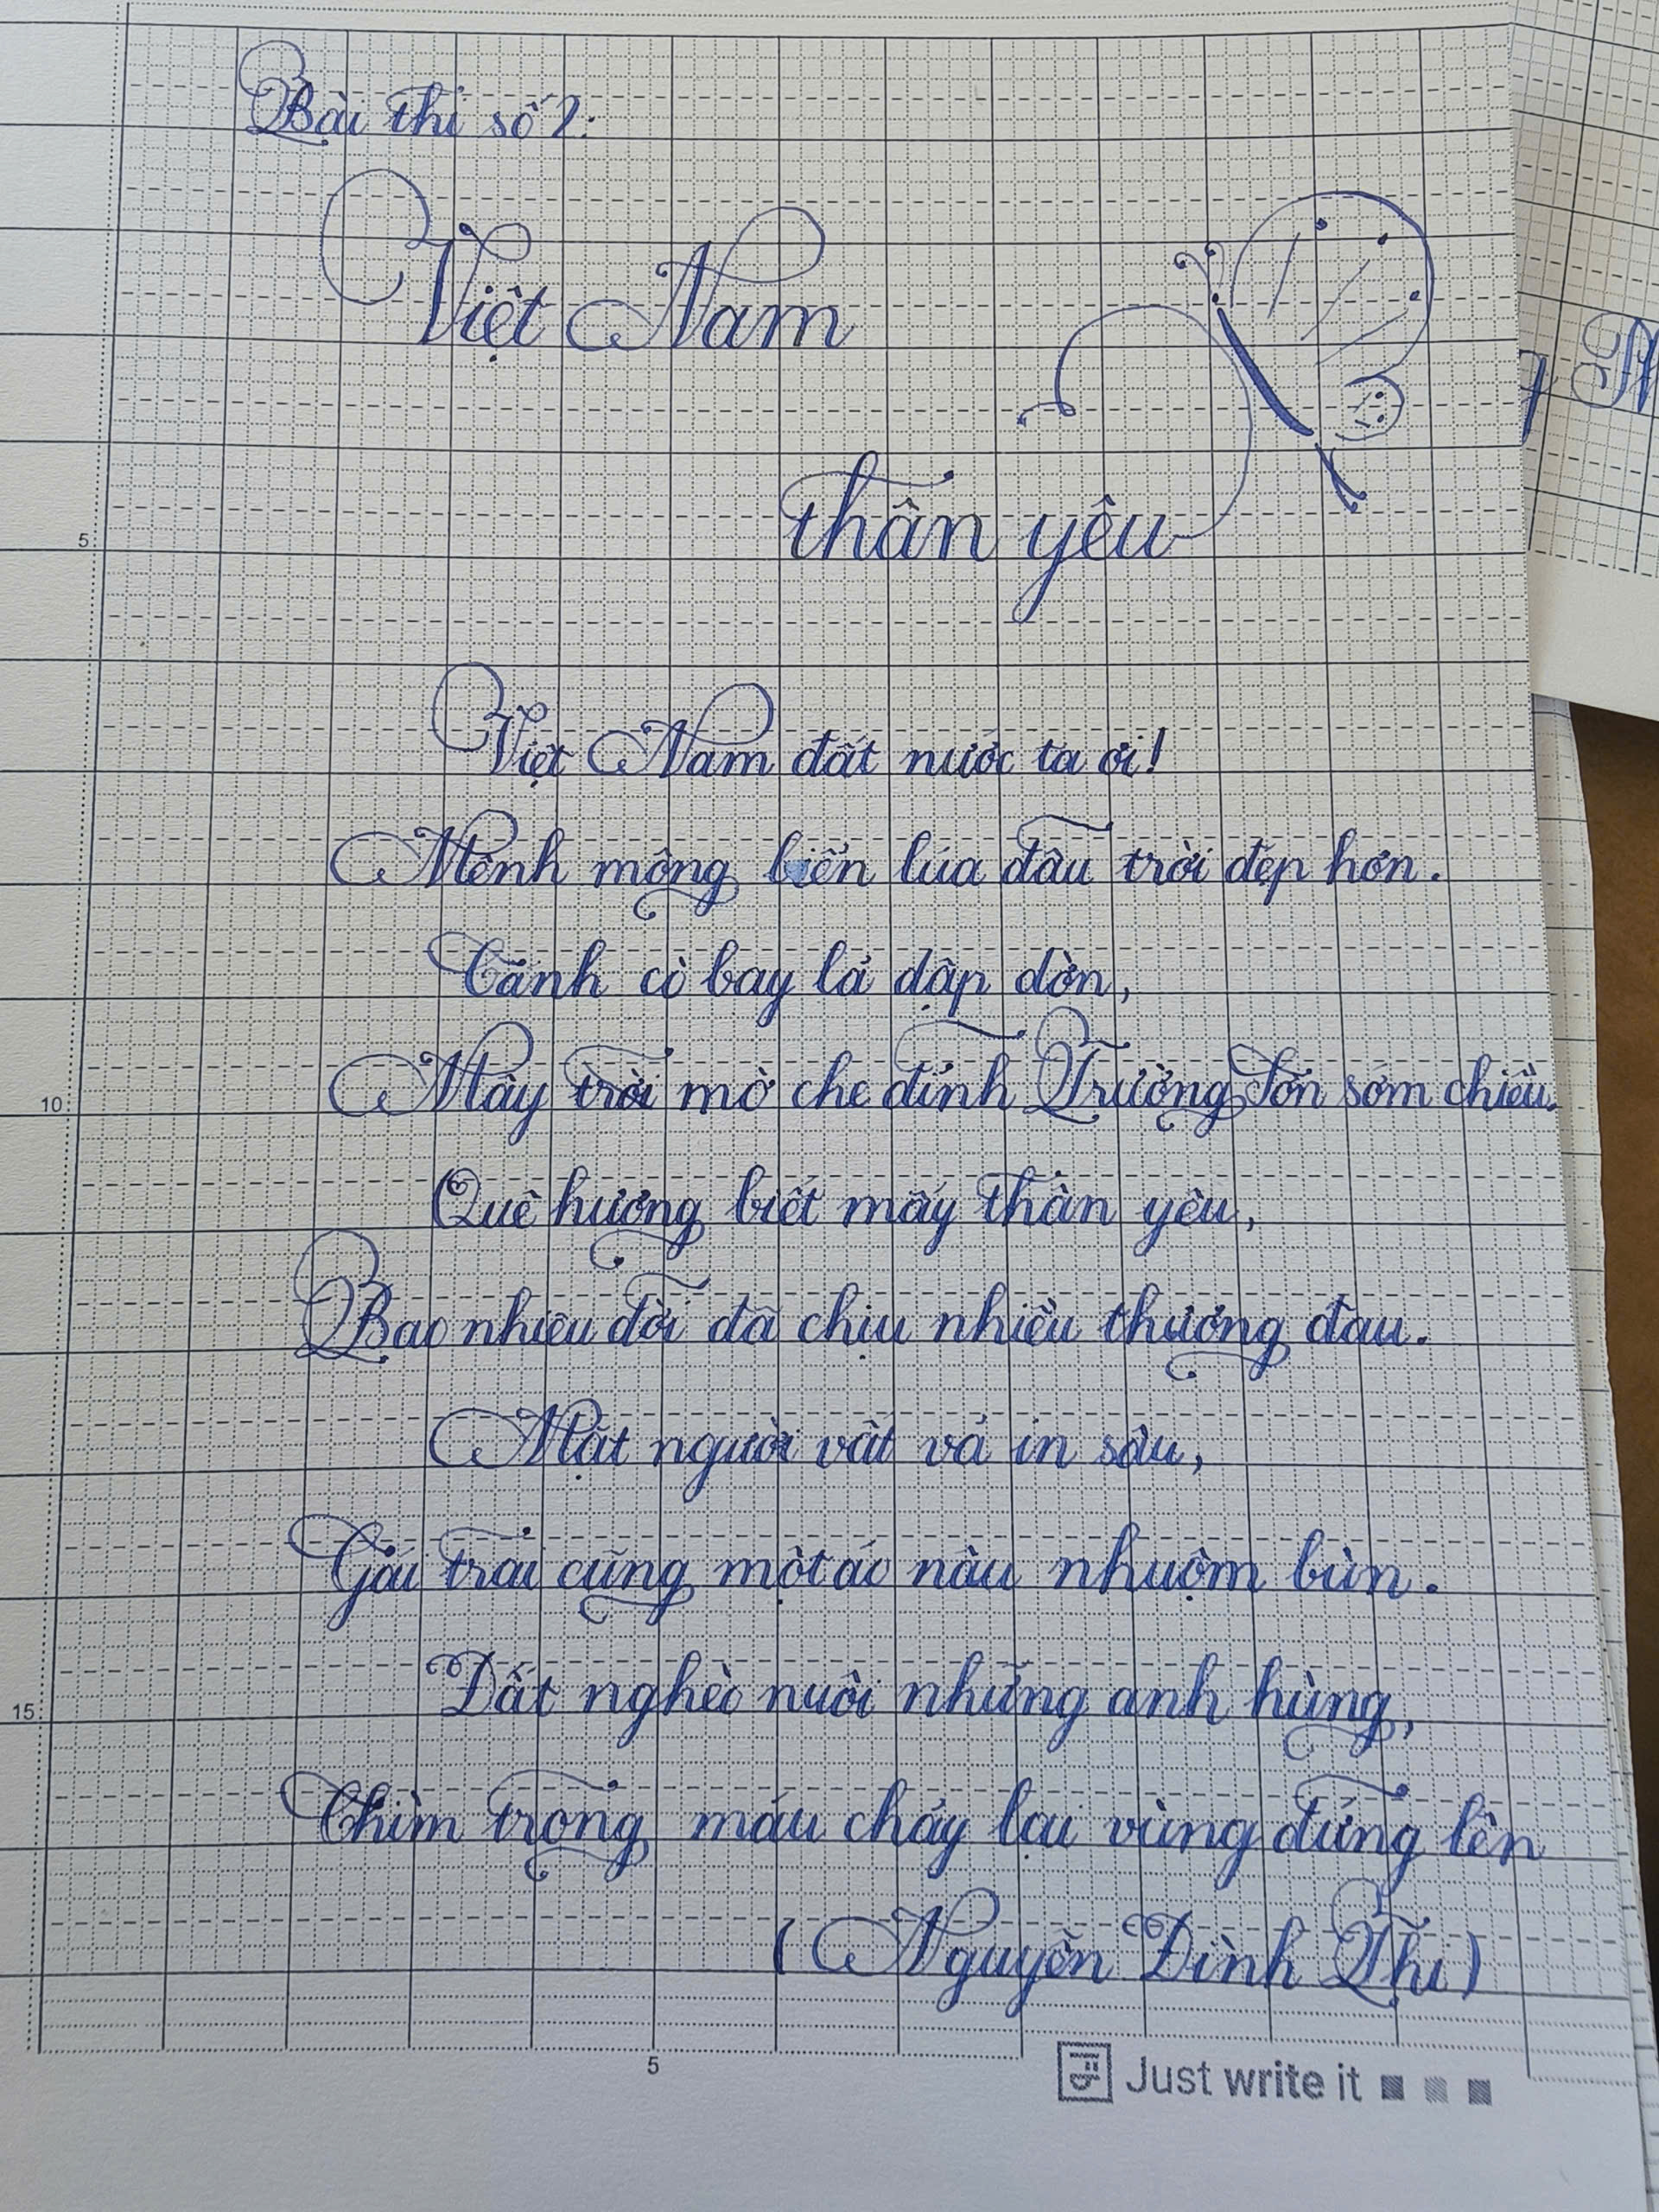 Bài thi số 2:
Việt Nam
thân yêu
Việt Nam đất nước ta ơi!
Mênh mông biển lúa đâu trời đẹp hơn.
Cánh cò bay lả dập dờn,
Mây trời mờ che đỉnh Trường Sơn sớm chiều.
Quê hương biết mấy thân yêu,
Bao nhiêu đời đã chịu nhiều thương đau.
Mặt người vất vả in sâu,
Gái trai cũng một áo nâu nhuộm bùn.
Đất nghèo nuôi những anh hùng,
Chìm trong máu chảy lại vùng đứng lên
(Nguyễn Đình Thi)
5
10
15
5
Just write it